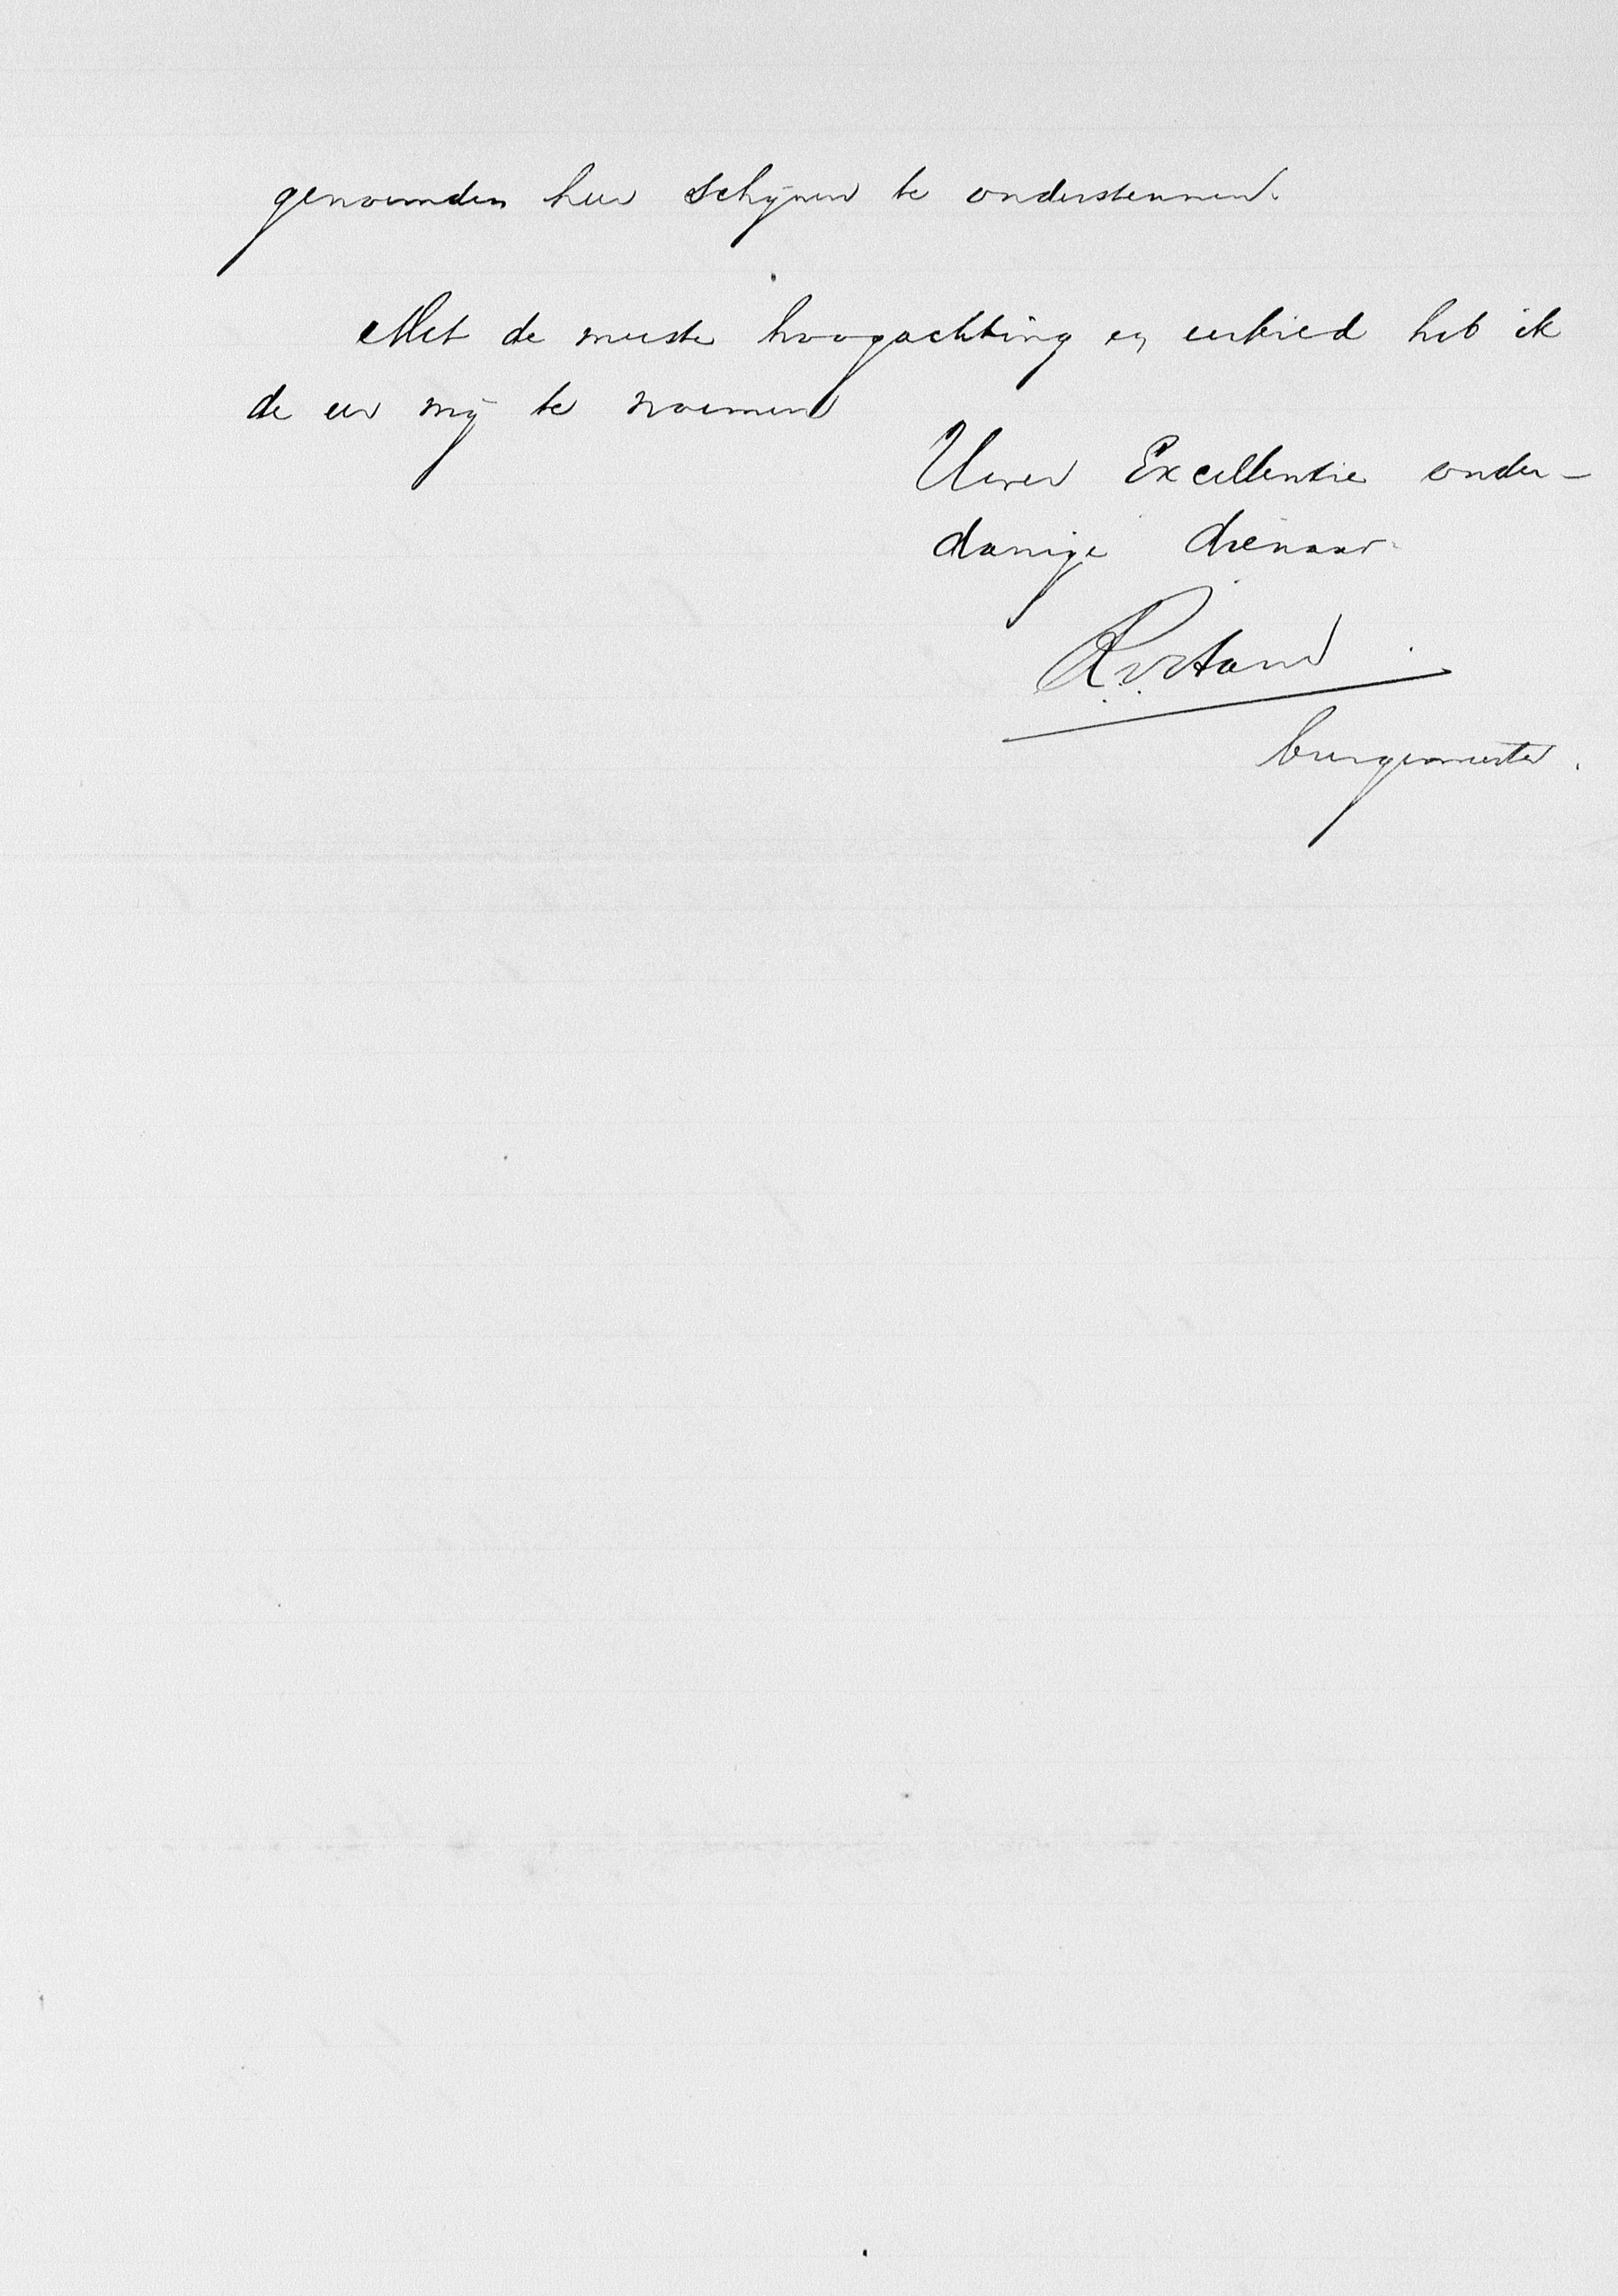 genoemden heer schijnen te ondersteunen.
Met de meeste hoogachting en eerbied heb ik
de eer mij te noemen
Uwer Excellentie onder-
danige dienaar
burgemeester.